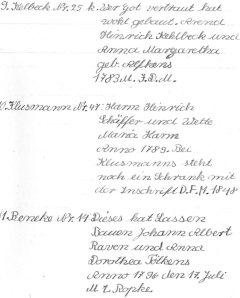 9. Kelbeck Nr. 25 k. Wer Got vertraut hat
wohl gebaut. Arend
Hinrich Kehlbeck und
Anna Margaretha
geb. Alfkens
1783 M. J. D. M.
Klusmann Nr. 41: Harm Hinrich
Schäffer und Mette
Maria Harm
Anno 1789. Bei
Klusmanns steht
noch ein Schrank mit
der Inschrift D. F. M. 1848
11. Beneke Nr. 44 Dieses hat Lassen
Bauen Johann Albert
Raven und Anna
Dorothea Fölkens
Anno 1796 den 17 Juli
M 2 Ropke